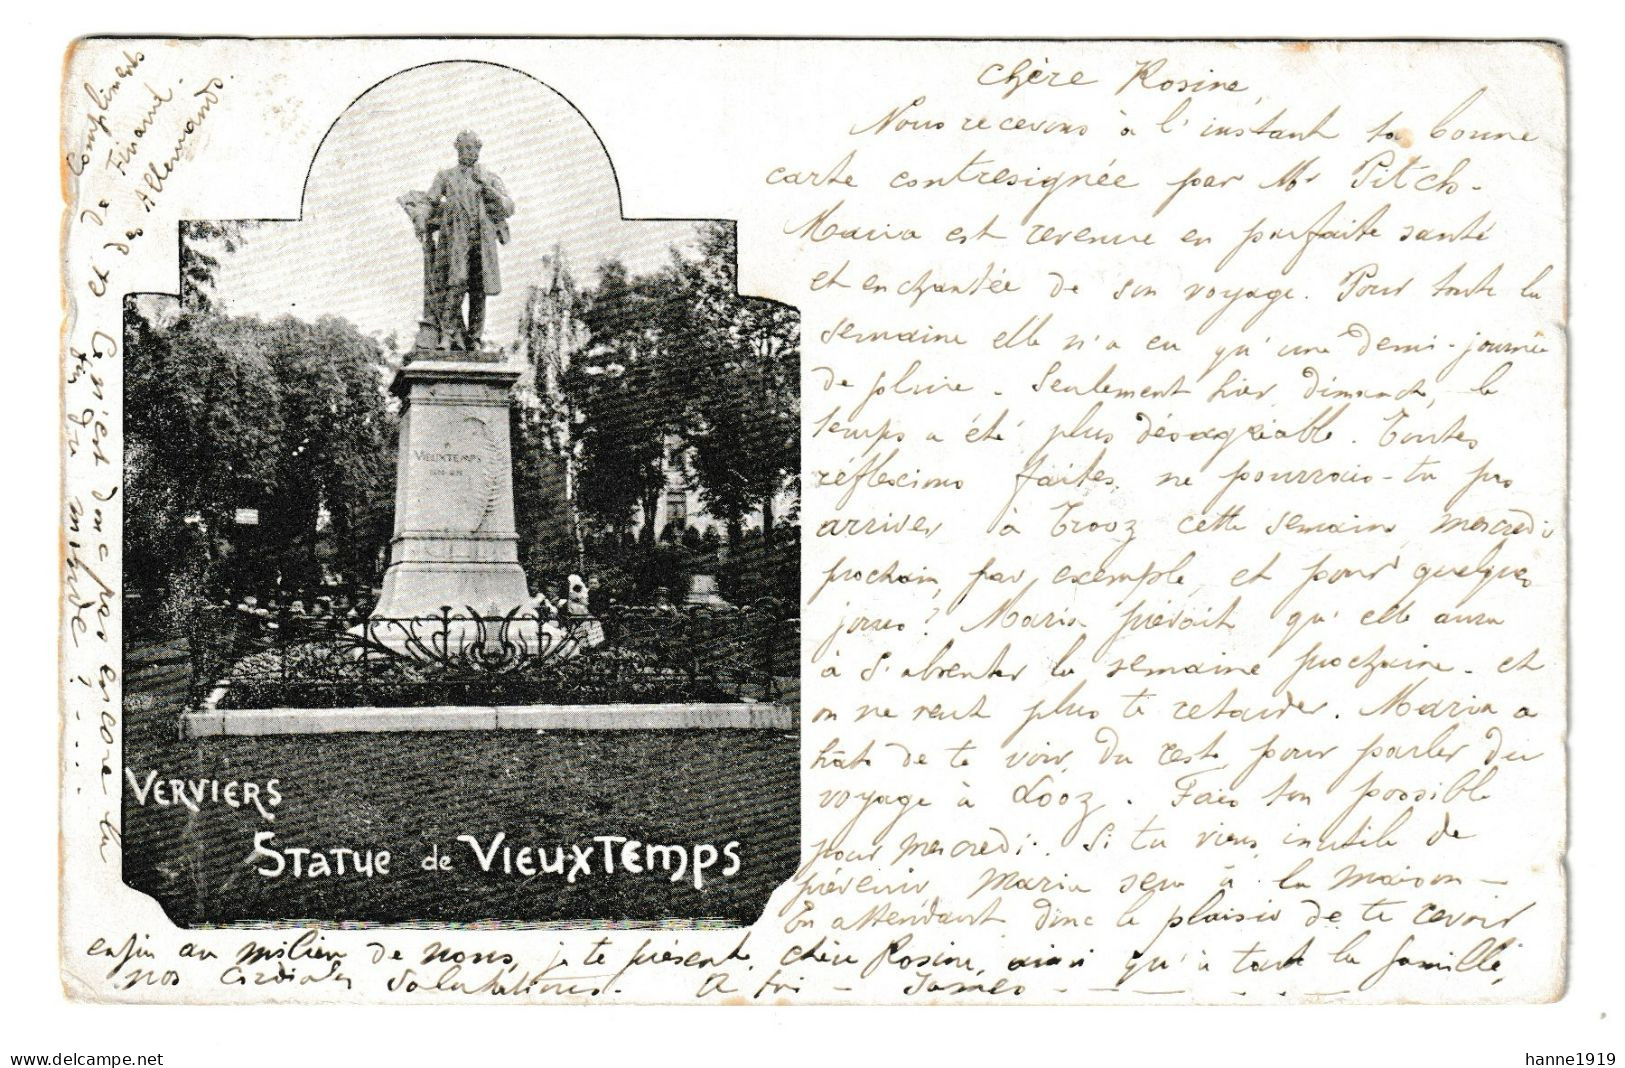 Chère Rosine,
Nous recevons à l'instant ta bonne
carte contresignée par Mr Pitch.
Maria est revenue en parfaite santé
et enchantée de son voyage. Pour toute la
semaine elle n'a eu qu'une demi-journée
de pluie. Seulement hier, dimanche, le
temps a été plus désagréable. Toutes
réflexions faites, ne pourrais-tu pas
arriver à Trooz cette semaine, mercredi
prochain, par exemple, et pour quelques
jours? Maria prévoit qu'elle aura
à s'absenter la semaine prochaine - et
on ne veut plus te retarder. Maria a
hâte de te voir, du reste, pour parler du
voyage à Looz. Fais ton possible
pour mercredi. Si tu viens, inutile de
prévenir, Maria sera à la maison -
En attendant donc le plaisir de te revoir
enfin au milieu de nous, je te présente, chère Rosine, ainsi qu'à toute la famille,
nos cordiales salutations. A toi - James
Compliments
de Finami.
des Allemands.
Ce n'est donc pas encore la
VIEUXTEMPS
VERVIERS
STATUE de VIEUXTEMPS
delcampe.net
hanne1919